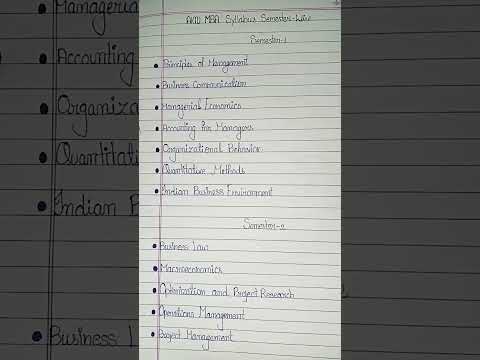 AKTU MBA Syllabus Semester-Wise
Semester-1
Principles of Management
Business Communication
Managerial Economics
Accounting for Managers
Organizational Behavior
Quantitative Methods
Indian Business Environment
Semester-2
Business Law
Macroeconomics
Optimization and Project Research
Operations Management
Project Management
Managerial
Accounting
Organiza
Quantitative
Indian B
Business L